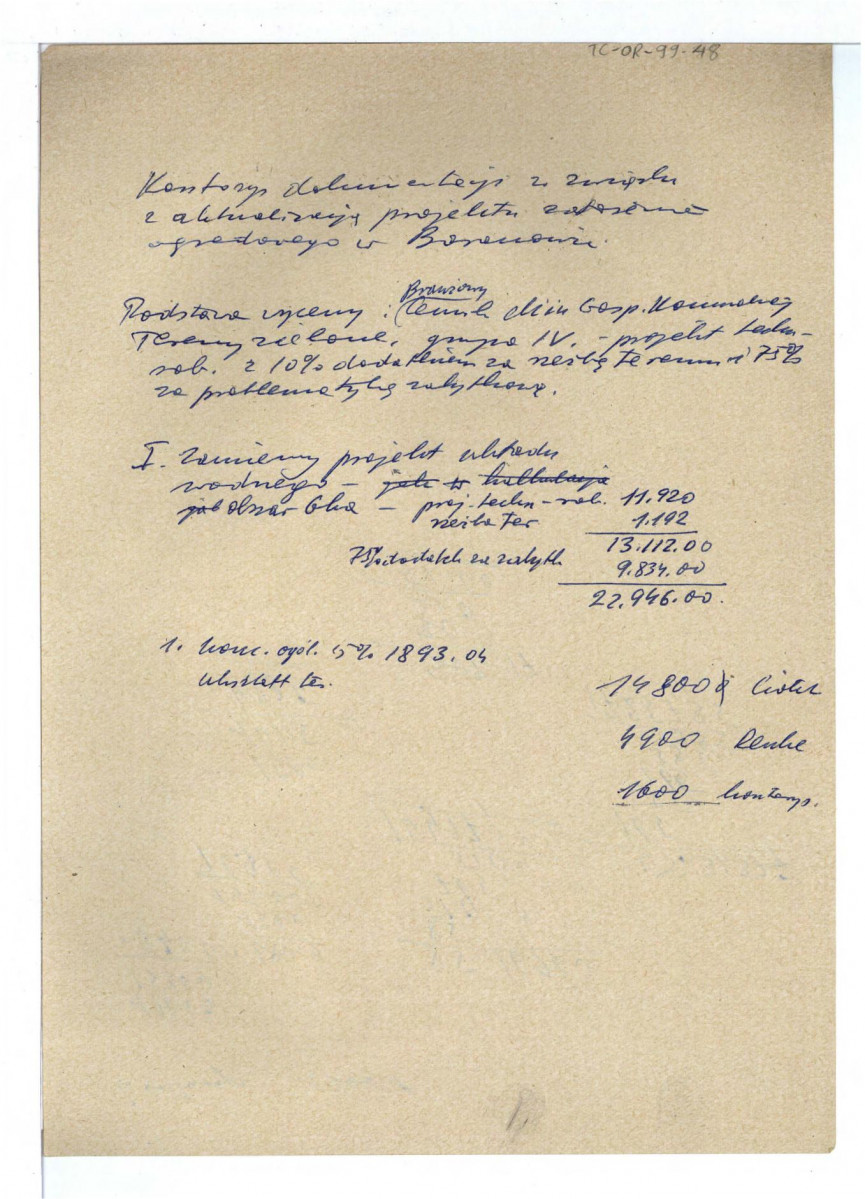 TC-OR-99-48
Kosztorys dokumentacji w związku
z aktualizacją projektu założenia
ogrodowego w Baranowie.
Branżowy
Podstawa wyceny : Cennik Min Gosp. Komunalnej
Tereny zielone, grupa IV. - projekt techn-
rob. z 10% dodatkiem za rzeźbę terenu i 75%
za problematykę zabytkową.
I. Zamienny projekt układu
wodnego -
obszar 6ha - proj. techn - rob. 11.920
rzeźba ter 1.192
13.112.00
75% dodatek za zabytk 9.834.00
22.946.00.
1. konc. ogól. 15% 1893.04
ukształt ter.
14800 Ciołek
4900 Renke
1600 kosztorys.